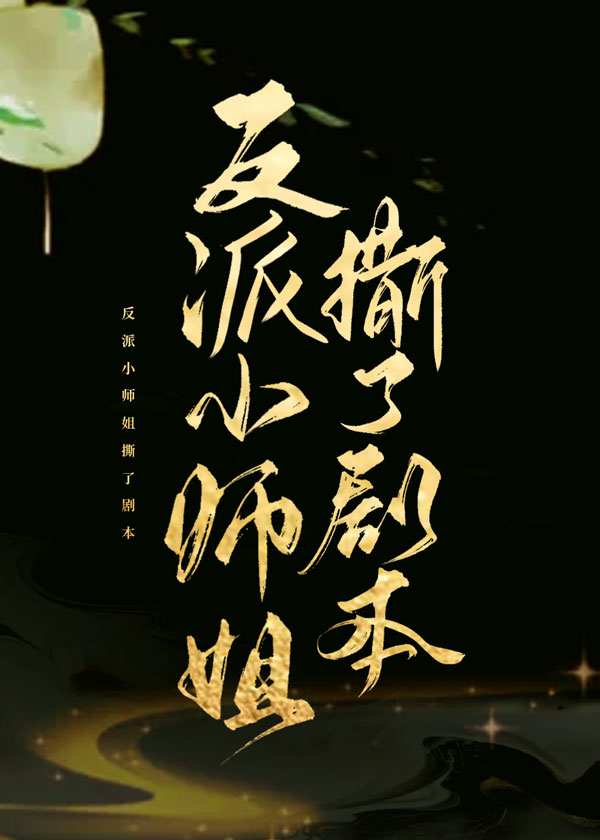 反派小师姐
撕了剧本
反派小师姐撕了剧本